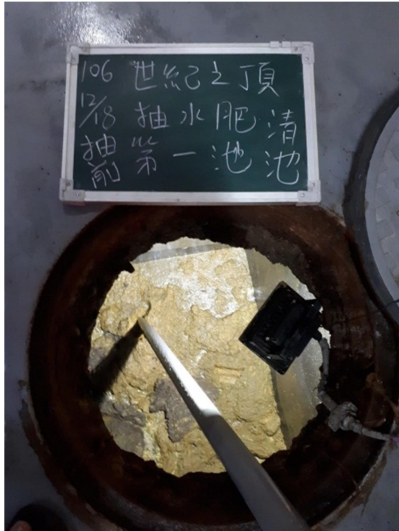 106 世紀之頂
12/18 抽水肥清池
抽前 第一池